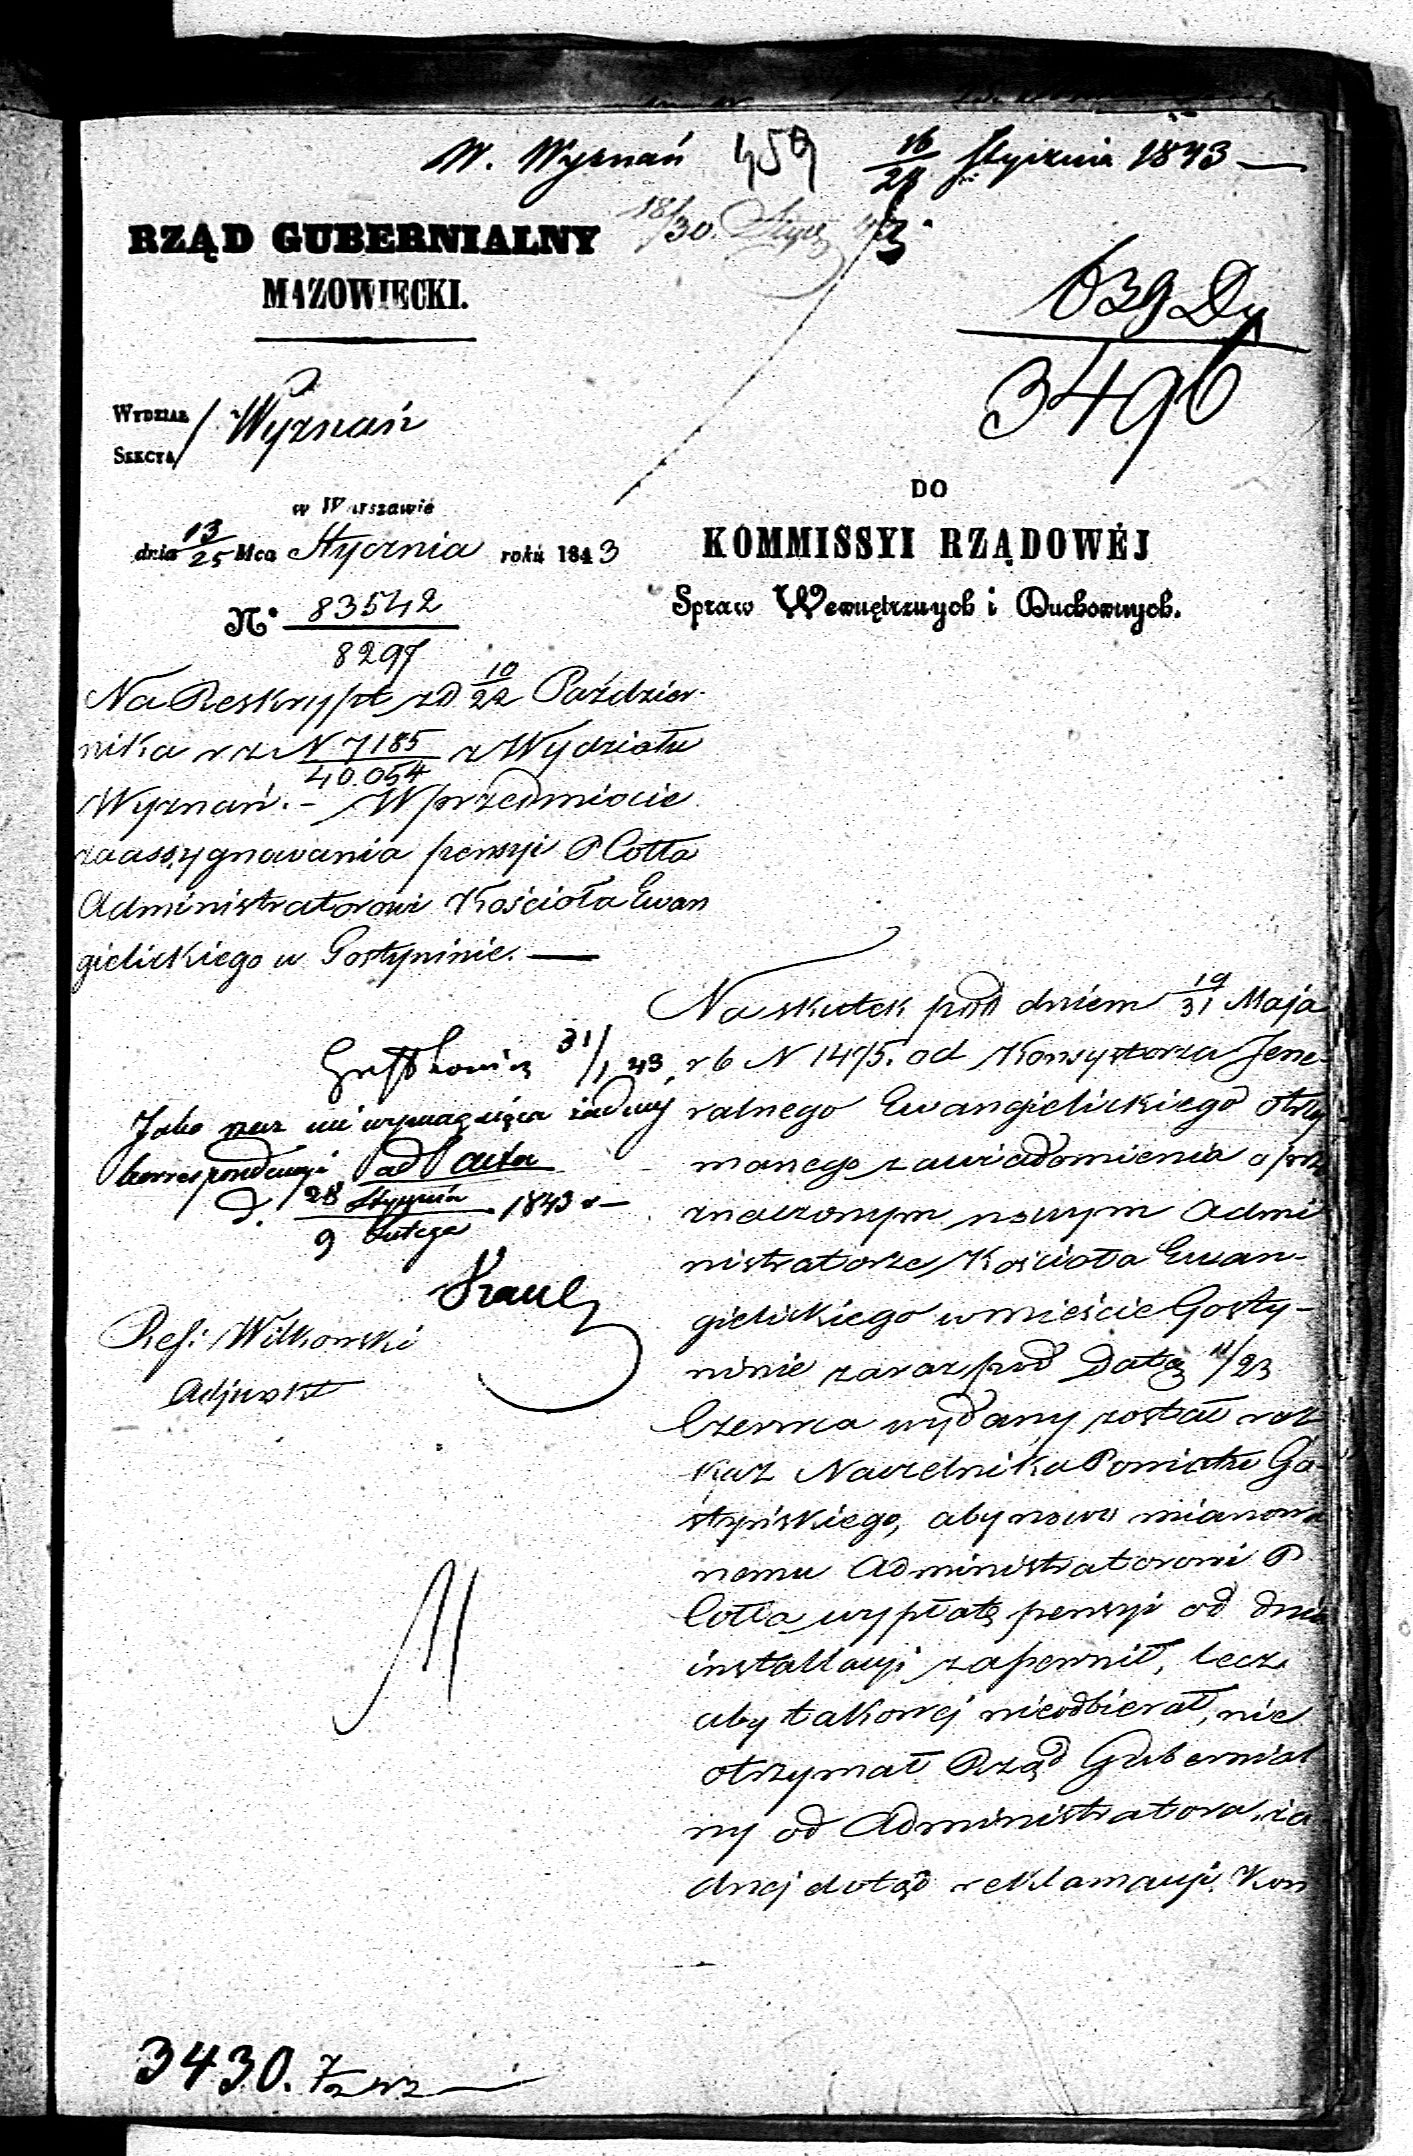 W. Wyznań 459 16/28 Stycznia 1843
18/30. Stycz 43.
RZĄD GUBERNIALNY
MAZOWIECKI.
639
3496
WYDZIAŁ
SEKCYA
Wyznań
w Warszawie
dnia 13/25 Mca Stycznia roku 1843
DO
KOMMISSYI RZĄDOWÉJ
Spraw Wewnętrznych i Duchownych.
N° 83542
8297
Na Reskrypt zD 10/22 Paździer-
nika r z N 7185/40.054 z Wydziału
Wyznań. – W przedmiocie
zaassygnowania pensyi P Cotta
Administratorowi Kościoła Ewan
gielickiego w Gostyninie. —
31/1 43.
Jako nie wymagająca żadnej
korrespondencyi ad acta
d. 28 Stycznia/9 Lutego 1843 r
Ref: Witkowski
Adjunkt
Na skutek pod dniem 19/31 Maja
r b N 1475. od Konsystorza Jene-
ralnego Ewangielickiego otrzy
manego zawiadomienia o prze
znaczonym nowym Admi
nistratorze Kościoła Ewan-
gielickiego w mieście Gosty-
ninie zaraz pod Datą 11/23
Czerwca wydany został roz
kaz Naczelnika Powiatu Go-
styńskiego, aby nowo mianowa
nemu Administratorowi P
Cotta wypłatę pensyi od dnia
instalacyi zapewnił, lecz
aby takowej nieodbierał, nie
otrzymał Rząd Gubernial
ny od Administratora ża
dnej dotąd reklamacyi. Kon
3430.